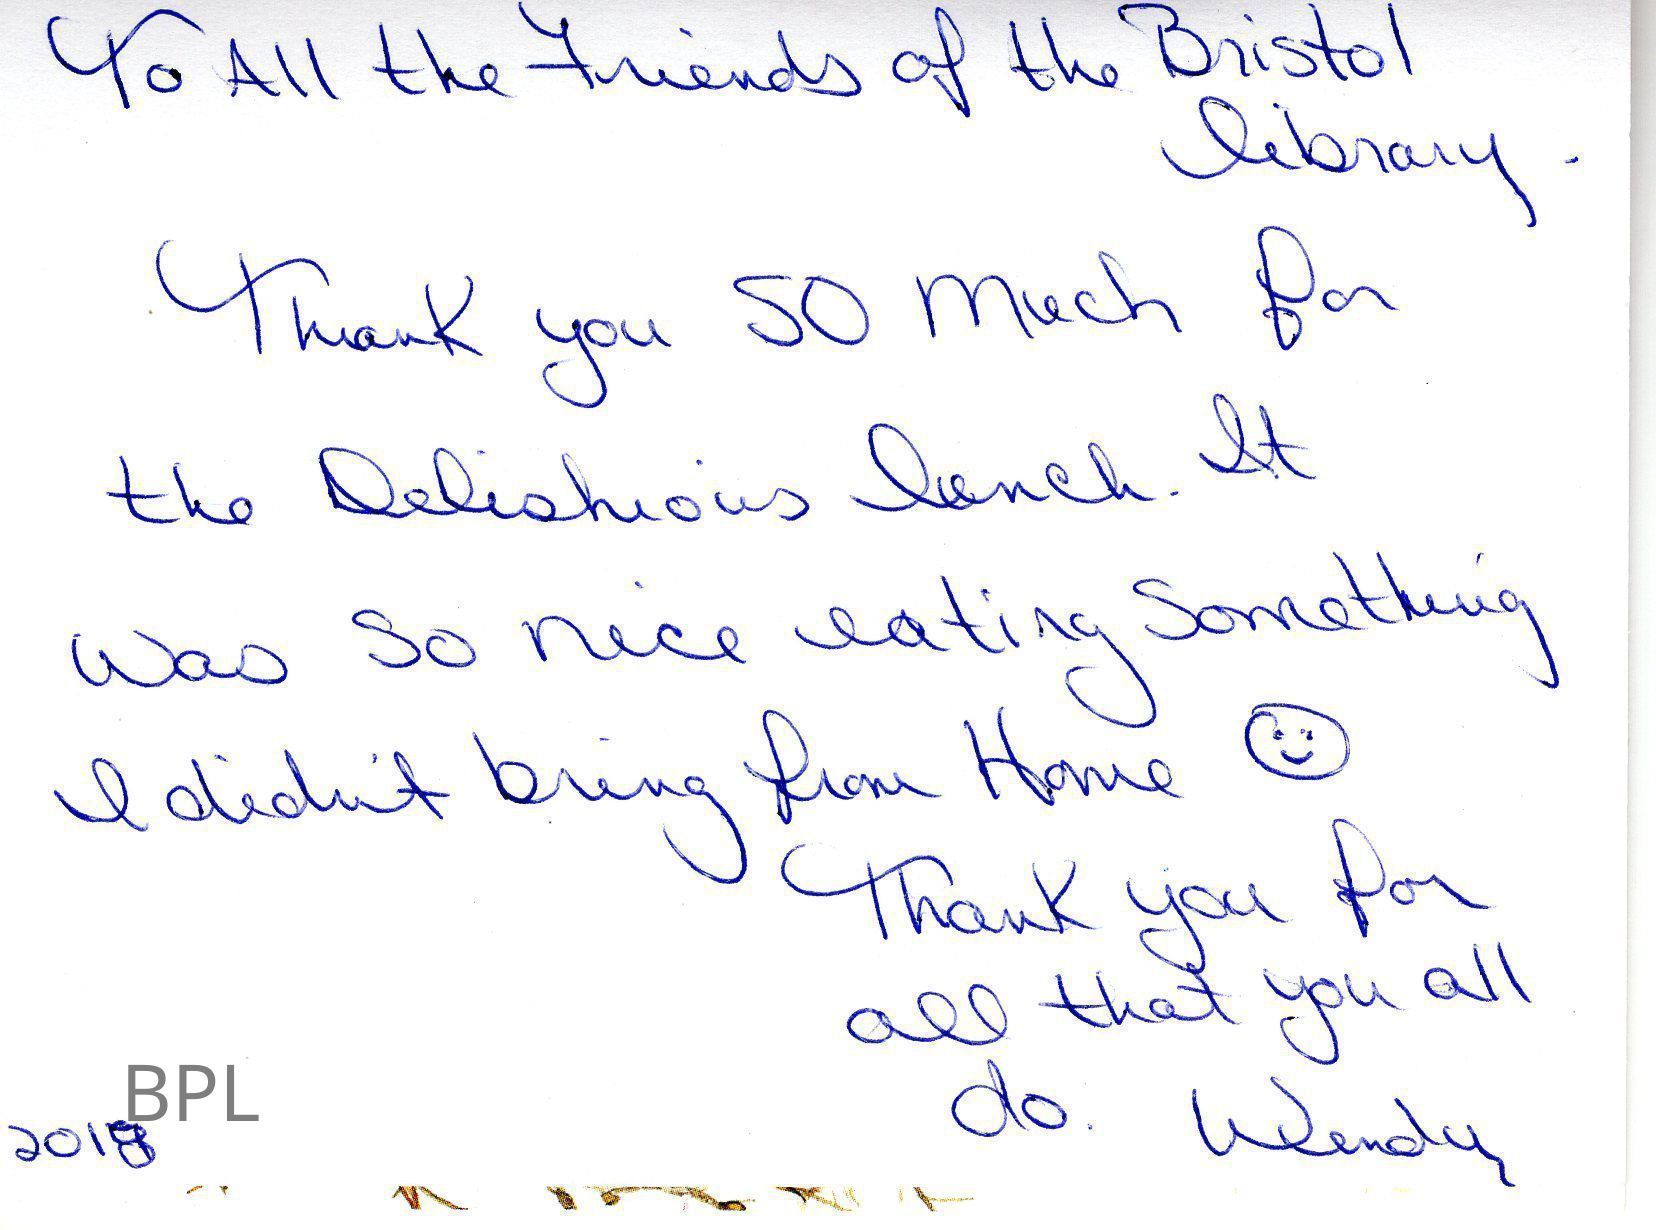 To All the Friends of the Bristol
library.
Thank you SO Much for
the Delishious lunch. It
was so nice eating Something
I didn't bring from Home
Thank you for
all that you all
do. Wendy
BPL
2018